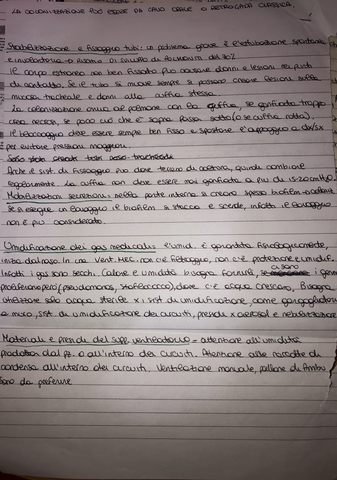 LA COLONIZZAZIONE PUÒ ESSERE DA CAVO ORALE O RETROGRADA CLASSICA
Stabilizzazione e fissaggio tubi: un problema grave è l'estubazione spontanea
e involontaria → rischio di sviluppo di polmonite del 30%
Il corpo estraneo non ben fissato può causare danni e lesioni nei punti
di contatto. Se il tubo si muove sempre si possono creare lesioni sulla
mucosa tracheale e danni alla cuffia stessa.
La colonizzazione arriva al polmone con la cuffia, se gonfiata troppo
crea necrosi, se poco ciò che è sopra passa sotto (o se cuffia rotta).
Il beccuccio deve essere sempre ben fisso e spostare l'appoggio a dx/sx
per evitare pressioni maggiori.
Anche il sist. di fissaggio può dare terreno di coltura, quindi cambiare
regolarmente. La cuffia non deve essere mai gonfiata a più di 15-20 mmHg.
Mobilizzazioni secrezioni: nella parte interna si creano spesso biofilm
Se si esegue un lavaggio il biofilm si stacca e scende, infatti il lavaggio
non è più considerato.
Umidificazione dei gas medicali: l'umid. è garantita fisiologicamente,
inizia dal naso. In una vent. mecc. non c'è filtraggio, non c'è protezione e umidif.
Infatti i gas sono secchi. Calore e umidità bisogna fornirli, ci sono i germi
proliferano però (pseudomonas, stafilococco), dove c'è acqua crescono, bisogna
utilizzare solo acqua sterile x i sist. di umidificazione, come gorgogliatori
a muro, sist. di umidificazione dei circuiti, presidi x aerosol e nebulizzazione
Materiali e presidi del supp. ventilatorio = attenzione all'umidità
prodotta dal pz. o all'interno dei circuiti. Attenzione alle raccolte di
condensa all'interno dei circuiti. Ventilazione manuale, pallone di Ambu
sono da preferire